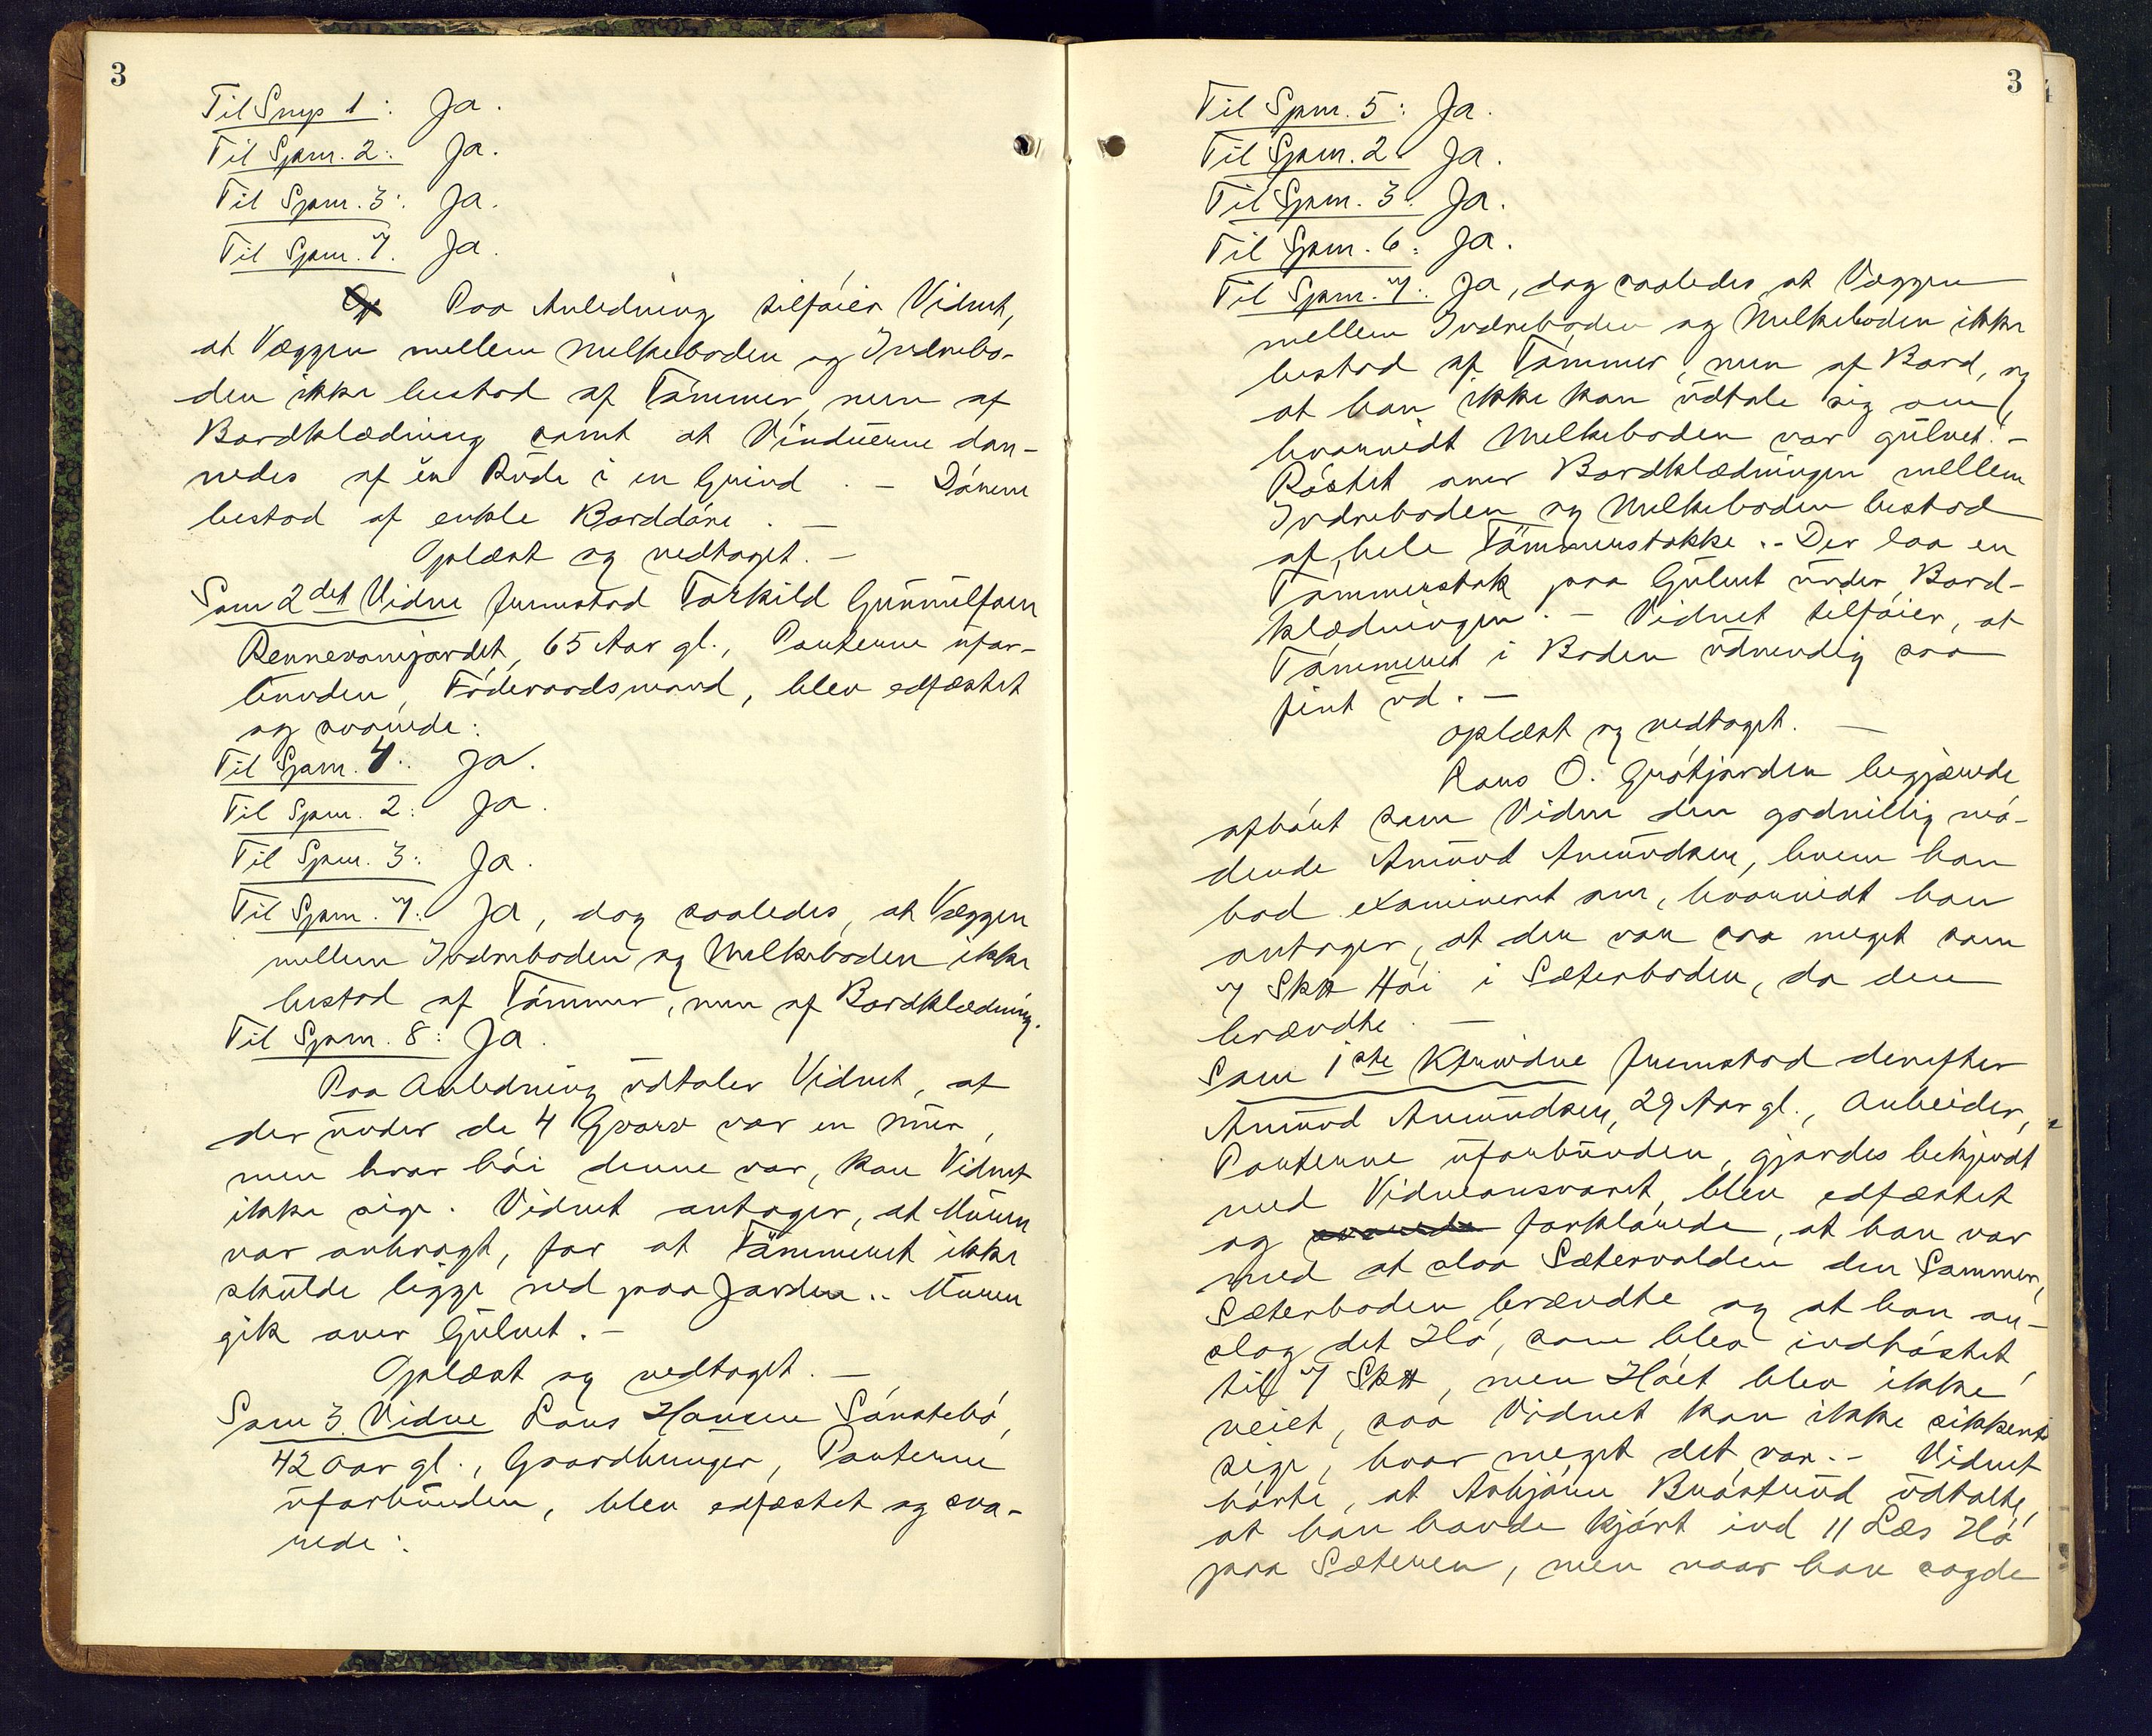 3
Til Smp 1: Ja.
Til Spm. 2: Ja.
Til Spm. 3: Ja.
Til Spm. 7. Ja.
Paa Anledning tilføier Vidnet,
at Væggen mellem Melkeboden og Indrebo-
den ikke bestod af Tømmer, men af
Bordklædning samt at Vinduerne dan-
nedes af én Rude i en Grind. – Dørene
bestod af enkle Borddøre. –
Oplæst og vedtaget. –
Som 2det Vidne fremstod Torkild Gunnulfsen
65 Aar gl., Parterne ufor-
bunden, Føderaadsmand, blev edfæstet
og svarede:
Til Spm. 4: Ja.
Til Spm. 2: Ja.
Til Spm. 3: Ja.
Til Spm. 7: Ja, dog saaledes, at Væggen
mellem Indreboden og Melkeboden ikke
bestod af Tømmer, men af Bordklædning.
Til Spm. 8: Ja.
Paa Anledning udtaler Vidnet, at
der under de 4 Hvarv var en Mur,
men hvor høi denne var, kan Vidnet
ikke sige. Vidnet antager, at Muren
var anbragt, for at Tømmeret ikke
skulde ligge ned paa Jorden. – Muren
gik over Gulvet. –
Oplæst og vedtaget. –
Som 3. Vidne Lars Hansen Sønstebø,
42 Aar gl., Gaardbruger, Parterne
uforbunden, blev edfæstet og sva-
rede:
3
Til Spm. 5: Ja.
Til Spm. 2. Ja.
Til Spm. 3. Ja.
Til Spm. 6: Ja.
Til Spm. 7: Ja, dog saaledes, at Væggen
mellem Indreboden og Melkeboden ikke
bestod af Tømmer, men af Bord, og
at han ikke kan udtale sig om,
hvorvidt Melkeboden var gulvet. –
Røstet over Bordklædningen mellem
Indreboden og Melkeboden bestod
af hele Tømmerstokke. – Der laa en
Tømmerstok paa Gulvet under Bord-
klædningen. – Vidnet tilføier, at
Tømmeret i Boden udvendig saa
pent ud. –
Oplæst og vedtaget. –
O. Grøtjorden begjærede
afhørt som Vidne den godvillig mø-
dende Amund Amundsen, hvem han
bad examineret om, hvorvidt han
antager, at der var saa meget som
7 Sk℔ Høi i Sæterboden, da den
brændte. –
Som 1ste Kfrvidne fremstod derefter
Amund Amundsen, 29 Aar gl., Arbeider,
Parterne uforbunden, gjordes bekjendt
med Vidneansvaret, blev edfæstet
og svarede forklarede, at han var
med at slaa Sætervolden den Sommer,
Sæterboden brændte og at han an-
slog det Hø, som blev indhøstet
til 7 Sk℔, men Høet blev ikke
veiet, saa Vidnet kan ikke sikkert
sige, hvor meget det var. – Vidnet
hørte, at Asbjørn udtalte,
at han havde kjørt ind 11 Læs Hø
paa Sæteren, men naar han sagde